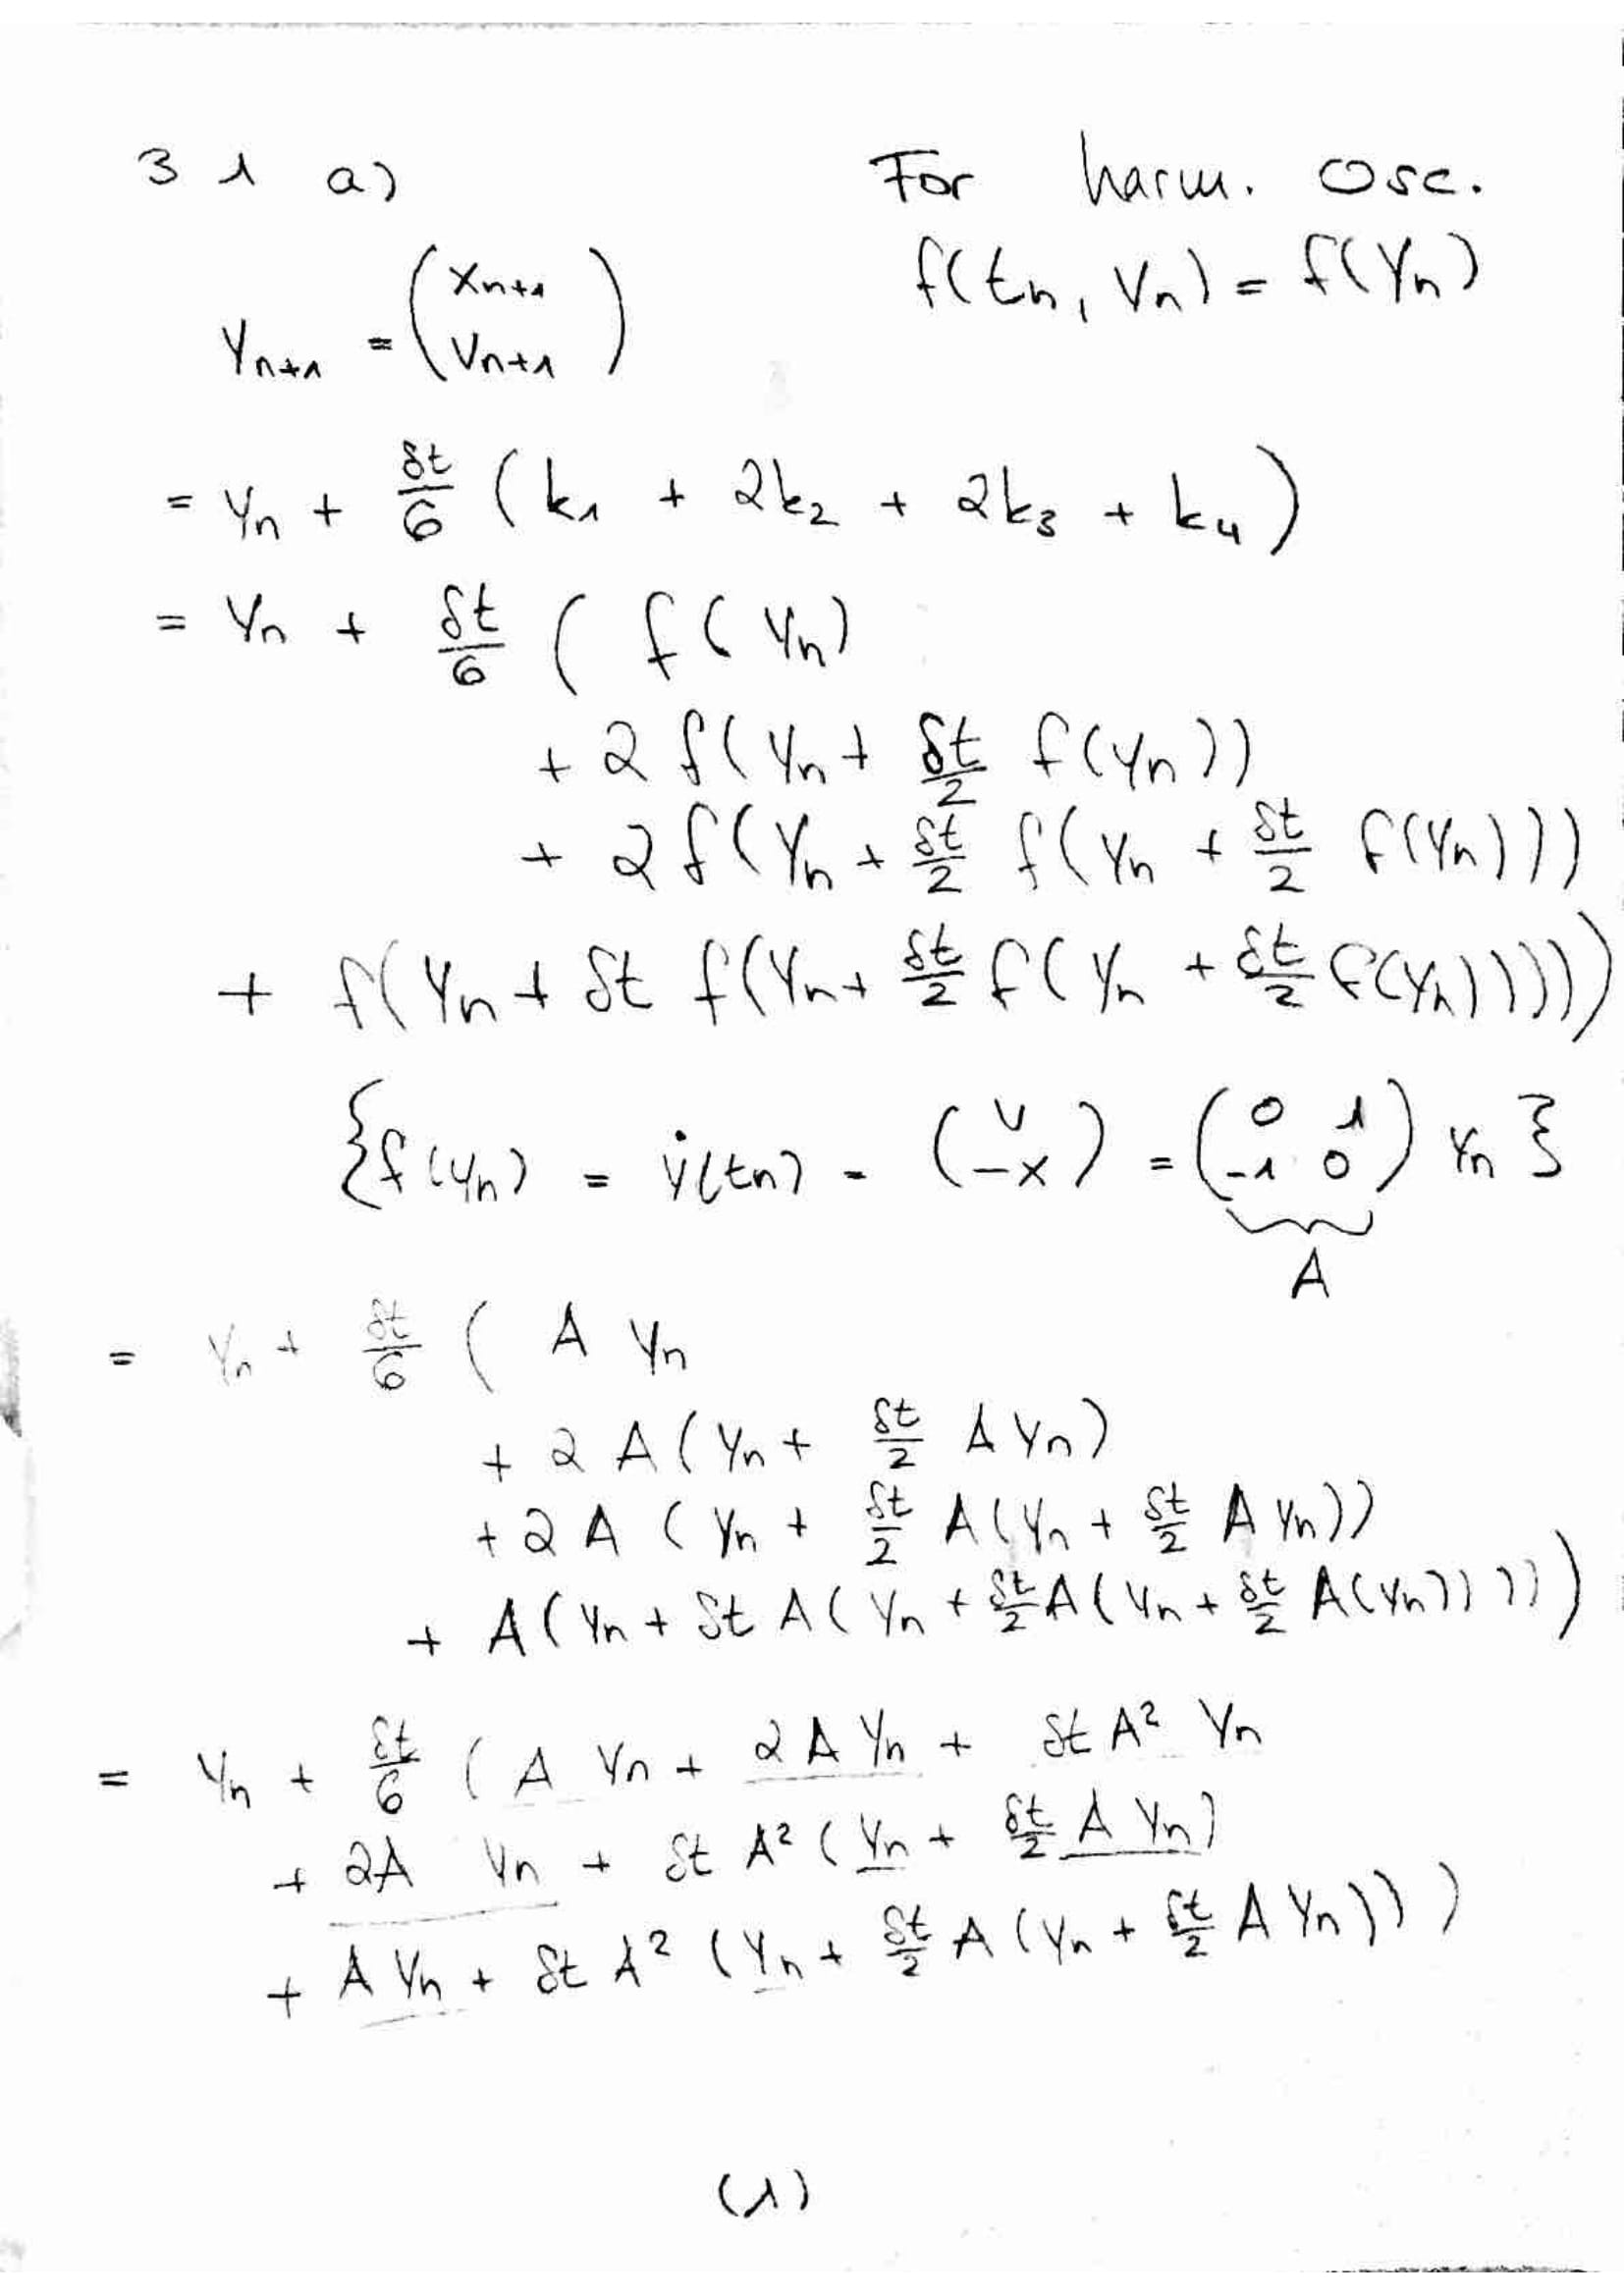 3 1 a) For harm. Osc.
f(tn, Yn) = f(Yn)
Yn+1 = (xn+1
vn+1)
= yn + δt/6 (k1 + 2k2 + 2k3 + k4)
= Yn + δt/6 ( f(Yn)
+ 2 f(Yn + δt/2 f(Yn))
+ 2 f(Yn + δt/2 f(Yn + δt/2 f(Yn)))
+ f(Yn + δt f(Yn + δt/2 f(Yn + δt/2 f(Yn)))))
{f(yn) = ẏ(tn) = (v
-x) = (0 1
-1 0) Yn}
A
= Yn + δt/6 ( A Yn
+ 2 A(Yn + δt/2 A Yn)
+ 2 A (Yn + δt/2 A(Yn + δt/2 A Yn))
+ A(Yn + δt A(Yn + δt/2 A(Yn + δt/2 A(Yn)))))
= Yn + δt/6 (A Yn + 2 A Yn + δt A² Yn
+ 2A Yn + δt A² (Yn + δt/2 A Yn)
+ A Yn + δt A² (Yn + δt/2 A (Yn + δt/2 A Yn)))
(1)